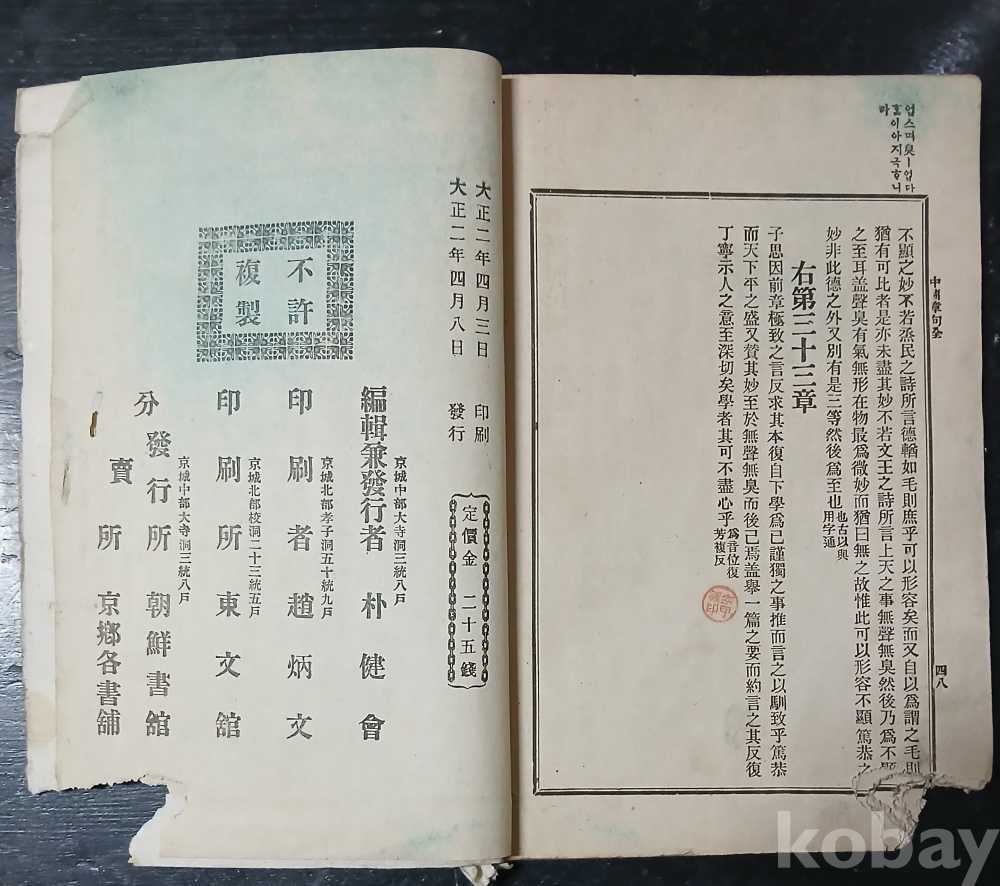 업스며臭ㅣ업다
홈이아지극ᄒᆞ니
라
中庸章句全
四八
不顯之妙不若烝民之詩所言德輶如毛則庶乎可以形容矣而又自以爲謂之毛則
猶有可比者是亦未盡其妙不若文王之詩所言上天之事無聲無臭然後乃爲不顯
之至耳盖聲臭有氣無形在物最爲微妙而猶曰無之故惟此可以形容不顯篤恭之
妙非此德之外又別有是三等然後爲至也
也古以與
用字通
右第三十三章
子思因前章極致之言反求其本復自下學爲己謹獨之事推而言之以馴致乎篤恭
而天下平之盛又贊其妙至於無聲無臭而後己焉盖舉一篇之要而約言之其反復
丁寧示人之意至深切矣學者其可不盡心乎
爲音位復
芳複反
大正二年四月三日 印刷
大正二年四月八日 發行
定價金 二十五錢
不許
複製
京城中部大寺洞三統八戶
編輯兼發行者 朴健會
京城北部孝子洞五十統九戶
印刷者 趙炳文
京城北部校洞二十三統五戶
印刷所 東文舘
京城中部大寺洞三統八戶
發行所 朝鮮書舘
分賣所 京鄕各書舖
kobay